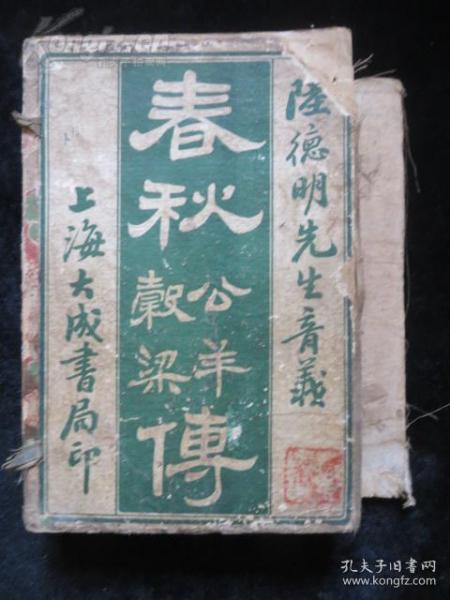 陸德明先生音義
春秋公羊穀梁傳
上海大成書局印
孔夫子旧书网
www.kongfz.com